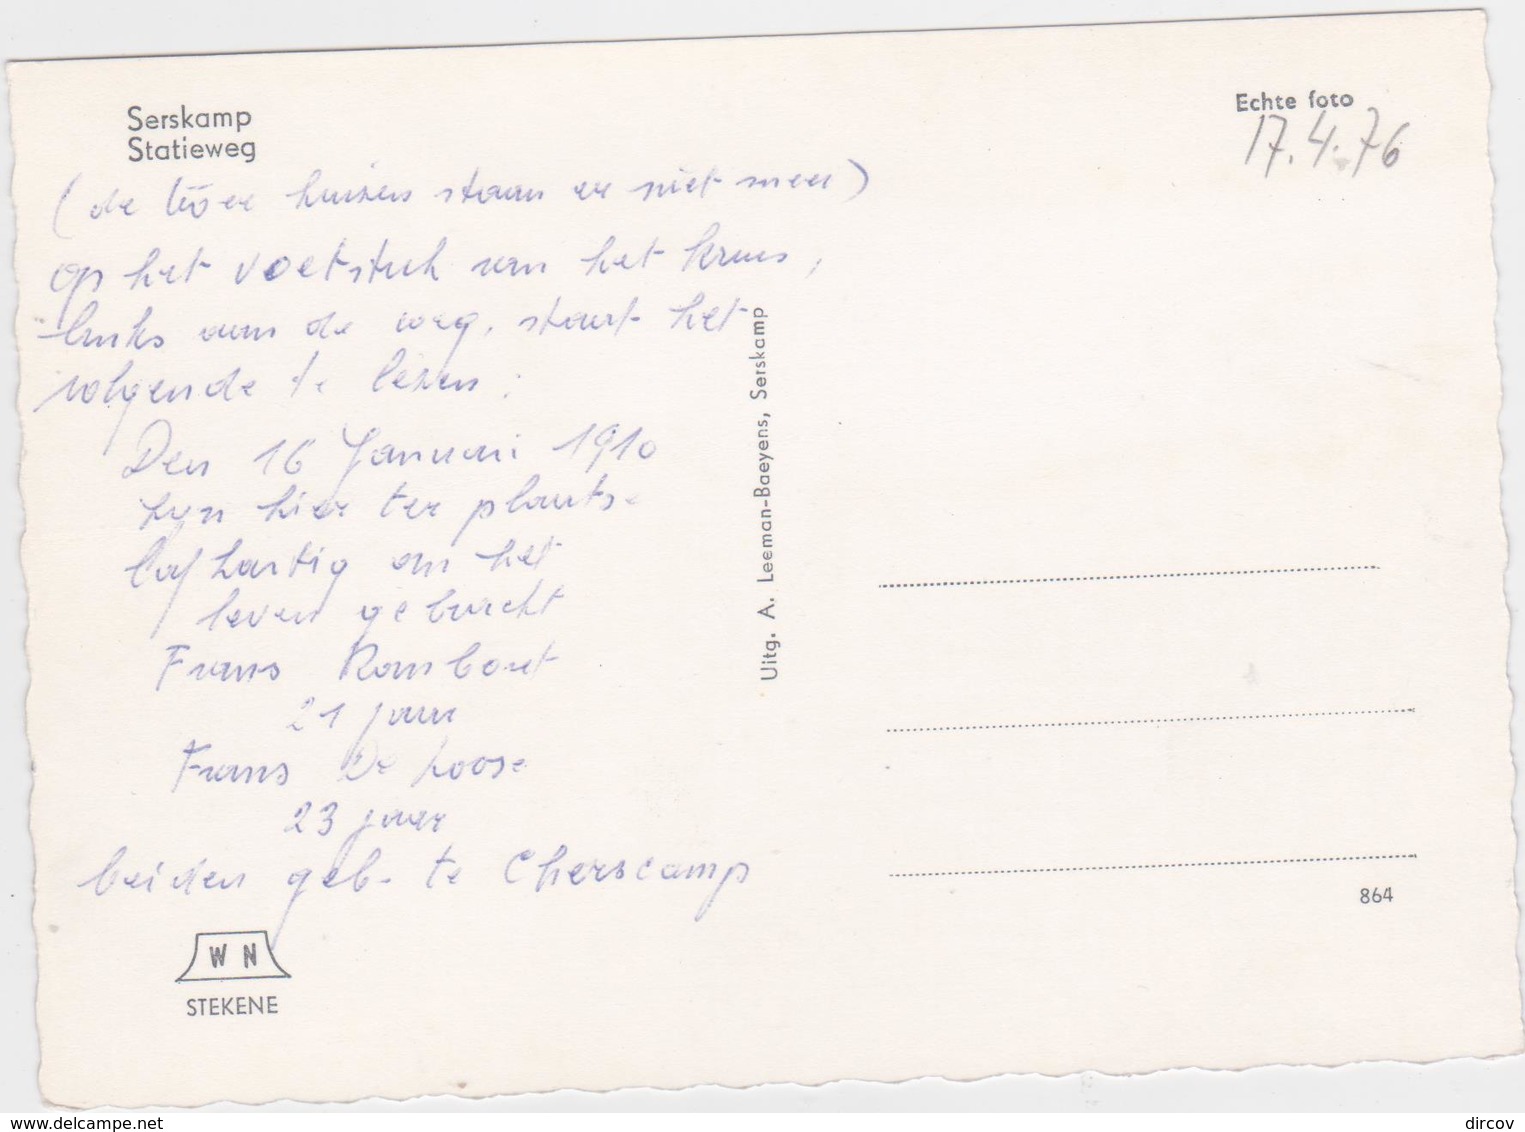 Serskamp
Statieweg
Echte foto
17.4.76
(de twee huizen staan er niet meer)
op het voetstuk van het kruis,
links aan de weg, staat het
volgende te lezen:
Den 16 Januari 1910
zyn hier ter plaatse
lafhartig om het
leven gebracht
Frans Rombout
21 jaar
Frans De Loose
23 jaar
beiden geb. te Cherscamp
Uitg. A. Leeman-Baeyens, Serskamp
864
W N
STEKENE
www.delcampe.net
dircov